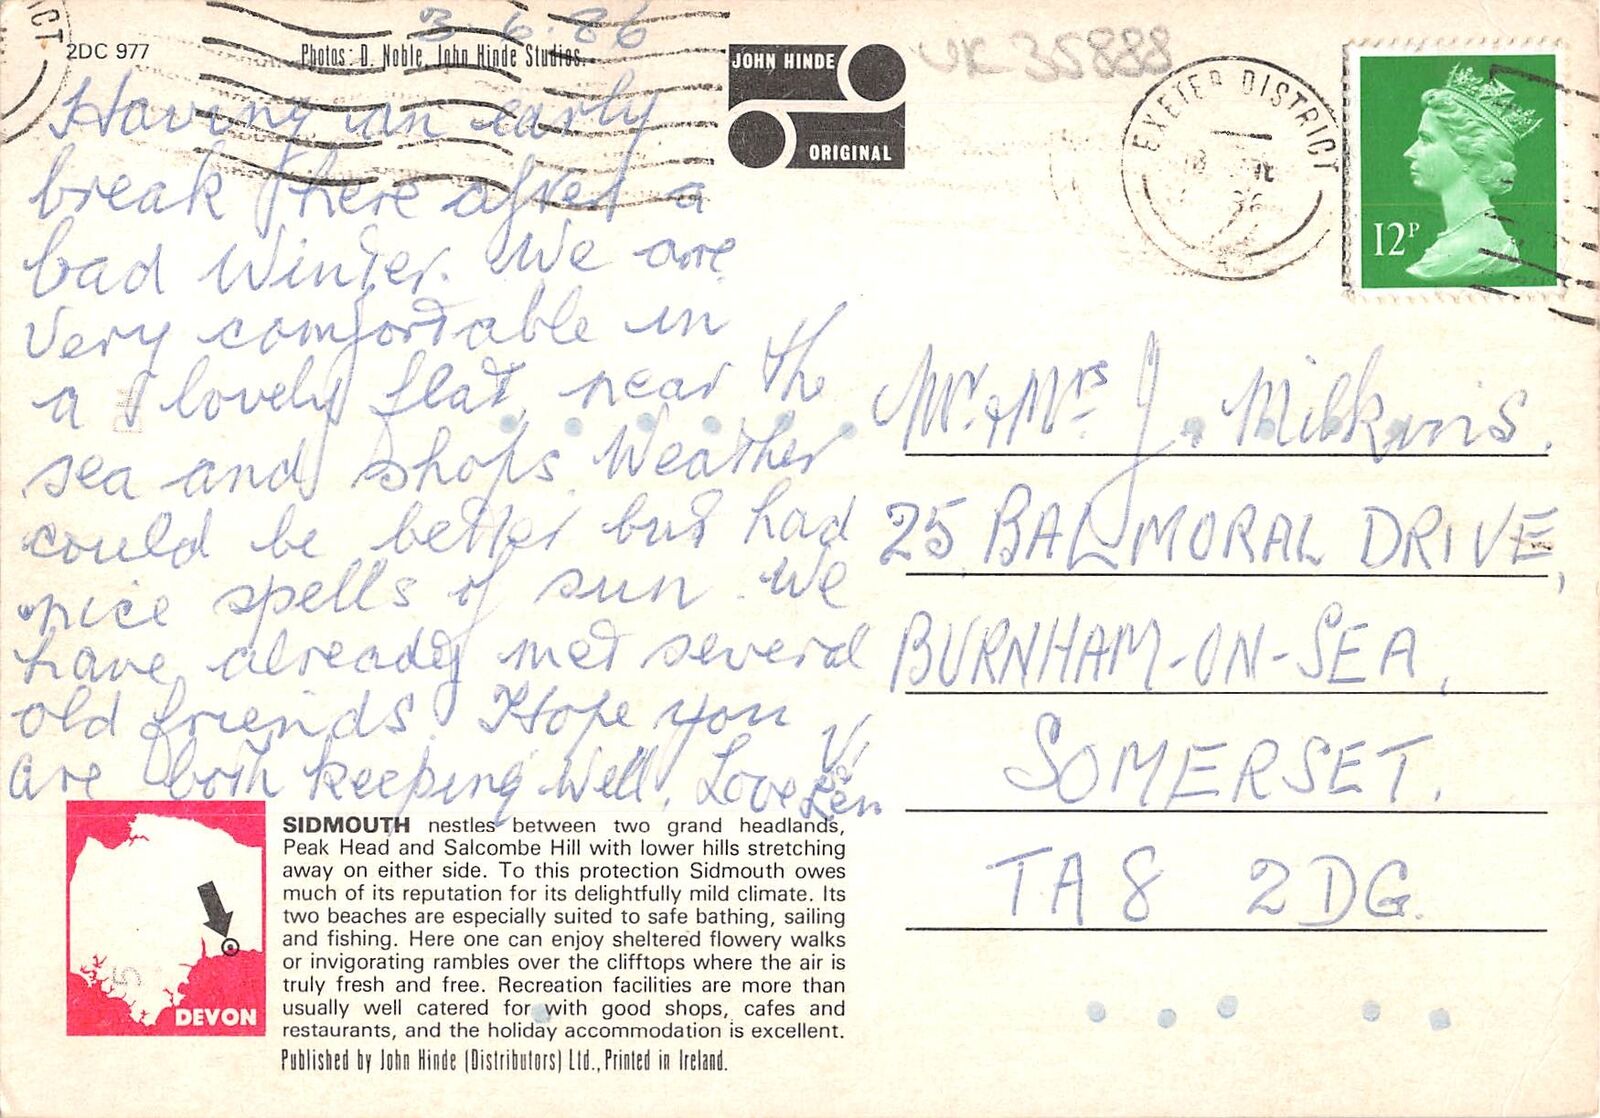 3.6.86
2DC 977
Photos: D. Noble, John Hinde Studios.
JOHN HINDE
ORIGINAL
UK 35888
EXETER DISTRICT
12P
Having an early
break here after a
bad Winter. We are
very comfortable in
a lovely flat, near the
sea and shops. Weather
could be better but had
nice spells of sun. We
have already met several
old friends. Hope you
are both keeping well. Love Vi
& Len
Mr. & Mrs J. Milkins.
25, BALMORAL DRIVE,
BURNHAM-ON-SEA,
SOMERSET.
TA8 2DG.
DEVON
SIDMOUTH nestles between two grand headlands,
Peak Head and Salcombe Hill with lower hills stretching
away on either side. To this protection Sidmouth owes
much of its reputation for its delightfully mild climate. Its
two beaches are especially suited to safe bathing, sailing
and fishing. Here one can enjoy sheltered flowery walks
or invigorating rambles over the clifftops where the air is
truly fresh and free. Recreation facilities are more than
usually well catered for with good shops, cafes and
restaurants, and the holiday accommodation is excellent.
Published by John Hinde (Distributors) Ltd., Printed in Ireland.